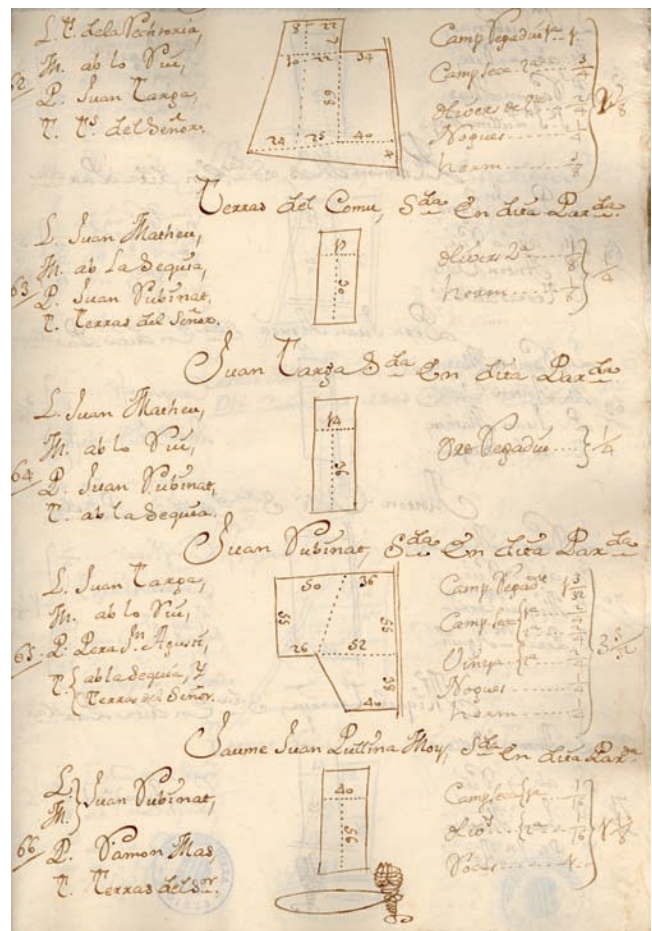 L. T.s de la Rectoria,
M. ab lo Riu,
62 P. Juan Targa,
T. T.s del Señor.
8 22
7
10 22 34
68
24 25 40
4
Camp Regadiu 1.a
Camp seca 2.a 3/4
oliver de 2.a 2/4
Nogues 1/4
herm 3/8
Terras del Comu, S.da En dita Par.da
L. Juan Matheu,
M. ab La Sequia,
63 P. Juan Subinat,
T. Terras del Señor.
12
30
olivers 2.a 1/8
herm 1/8
1/4
Juan Targa S.da En dita Par.da
L. Juan Matheu,
M. ab lo Riu,
64 P. Juan Subinat,
T. ab la Sequia.
14
36
Ort Regadiu 1/4
Juan Subinat, S.da En dita Par.da
L. Juan Targa,
M. ab lo Riu,
65 P. Pera Jn. Agusti,
T. ab la Sequia, y
Terras del Señor.
50 36
55 55
26 52
38
40
Camp Regadiu 1 3/32
Camp seca 1.a 2/4
2.a 2/4
Vinya 2.a 2/4
Nogues 1/4
herm 1/4
3 3/32
Jaume Juan Pullina Moy, S.da En dita Par.da
L. M. Juan Subinat,
66 P. Ramon Mas,
T. Terras del S.or.
40
56
Camp seca 1.a 1/16
oliv.s 2.a 1/16
Rocas 1
1 1/8